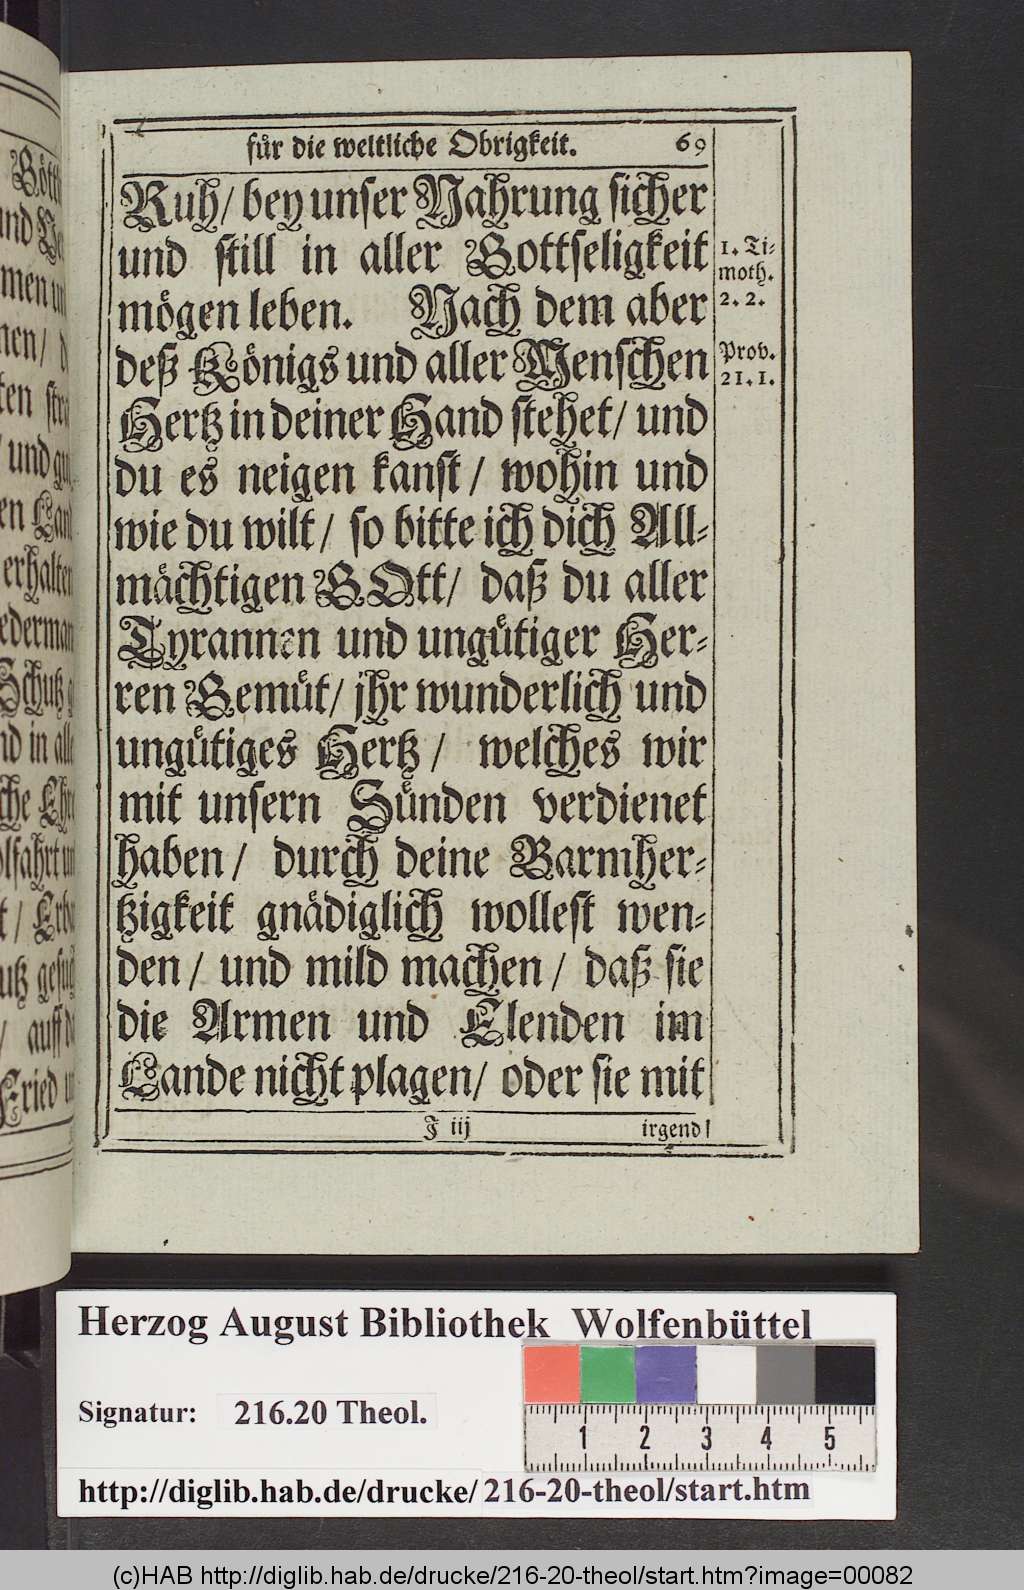 für die weltliche Obrigkeit. 69
Ruh/ bey unser Nahrung sicher
und still in aller Gottseligkeit
mögen leben. Nach dem aber
deß Königs und aller Menschen
Hertz in deiner Hand stehet/ und
du es neigen kanst/ wohin und
wie du wilt/ so bitte ich dich All-
mächtigen GOtt/ daß du aller
Tyrannen und ungütiger Her-
ren Gemüt/ jhr wunderlich und
ungütiges Hertz/ welches wir
mit unsern Sünden verdienet
haben/ durch deine Barmher-
tzigkeit gnädiglich wollest wen-
den/ und mild machen/ daß sie
die Armen und Elenden im
Lande nicht plagen/ oder sie mit
J iij irgend
1. Ti-
moth.
2. 2.
Prov.
21. 1.
Gött
und
men
nen/
ken
und
en Land
erhalten
ederman
Schutz
nd in alle
che
lfahrt
t/
utz
/ auff
Fried
Herzog August Bibliothek Wolfenbüttel
Signatur: 216.20 Theol.
1 2 3 4 5
http://diglib.hab.de/drucke/216-20-theol/start.htm
(c)HAB http://diglib.hab.de/drucke/216-20-theol/start.htm?image=00082